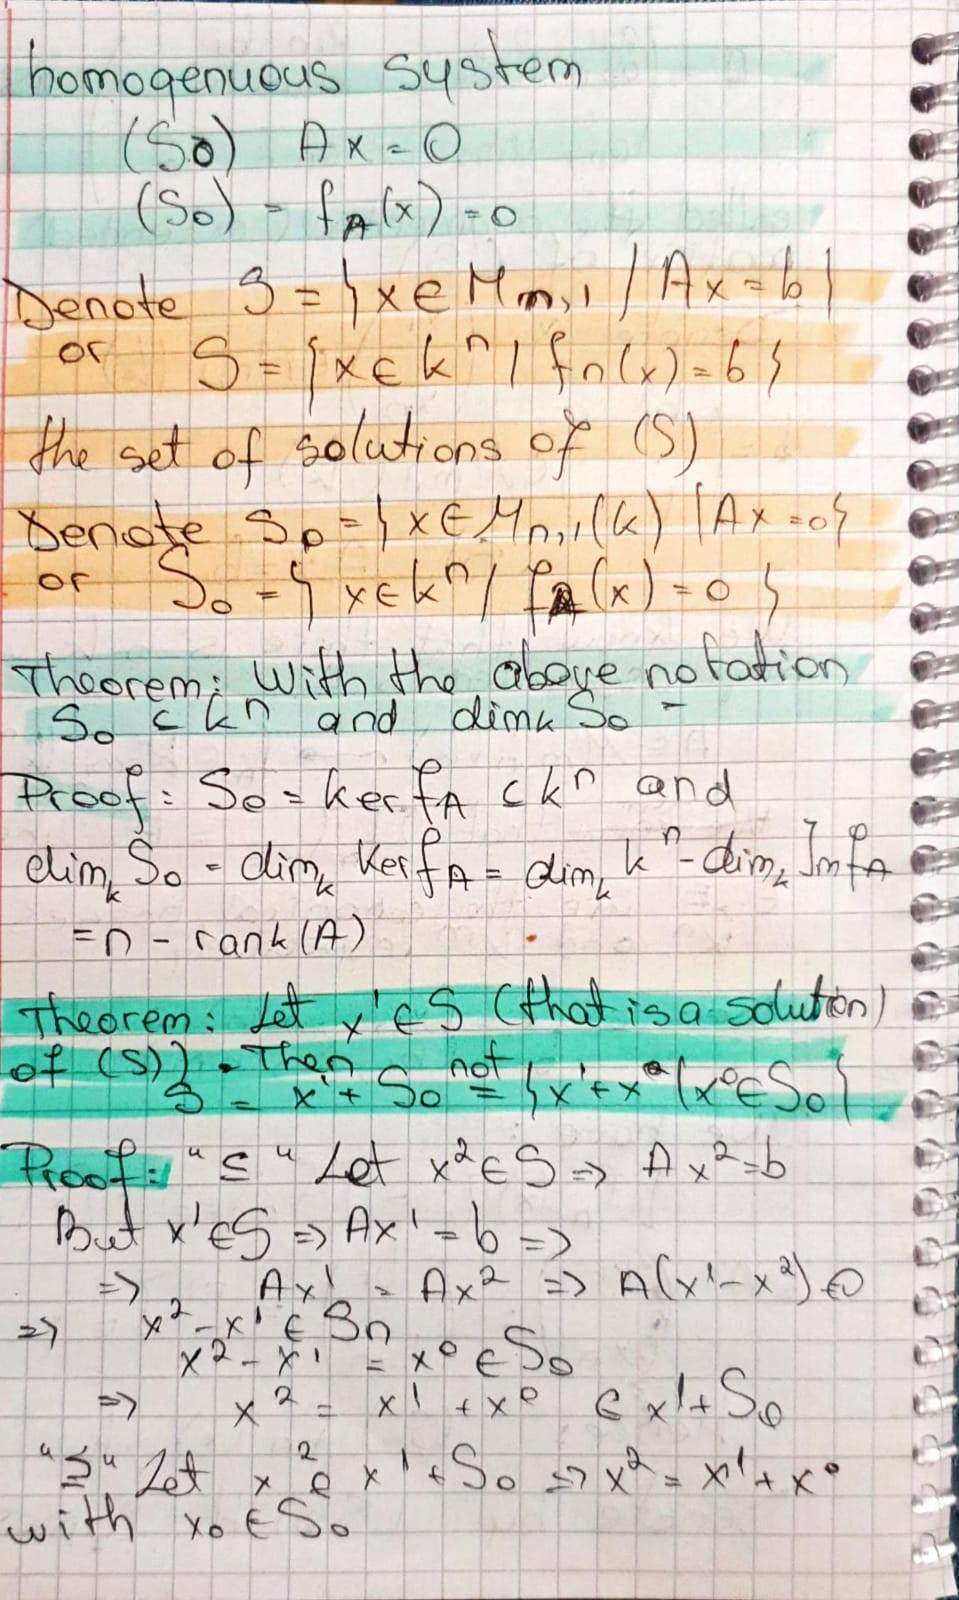 homogenuous system
(S0) Ax = 0
(S0) = fA(x) = 0
Denote S = { x ∈ Mn,1 / Ax = b }
or S = { x ∈ k^n / fn(x) = b }
the set of solutions of (S)
Denote S0 = { x ∈ Mn,1(k) | Ax = 0 }
or S0 = { x ∈ k^n / fA(x) = 0 }
Theorem: With the above notation
S0 ⊂ k^n and dimk S0 =
Proof: S0 = ker fA ⊂ k^n and
dimk S0 = dimk Ker fA = dimk k^n - dimk Im fA
= n - rank(A)
Theorem: Let x' ∈ S (that is a solution
of (S)). Then
S = x' + S0 not= { x' + x^0 | x^0 ∈ S0 }
Proof: "⊆" Let x^2 ∈ S => Ax^2 = b
But x' ∈ S => Ax' = b =>
=> Ax' = Ax^2 => A(x' - x^2) ∈ 0
=> x^2 - x' ∈ Sn
x^2 - x' = x^0 ∈ S0
=> x^2 = x' + x^0 ∈ x' + S0
"⊇" Let x^2 ∈ x' + S0 => x^2 = x' + x^0
with x0 ∈ S0